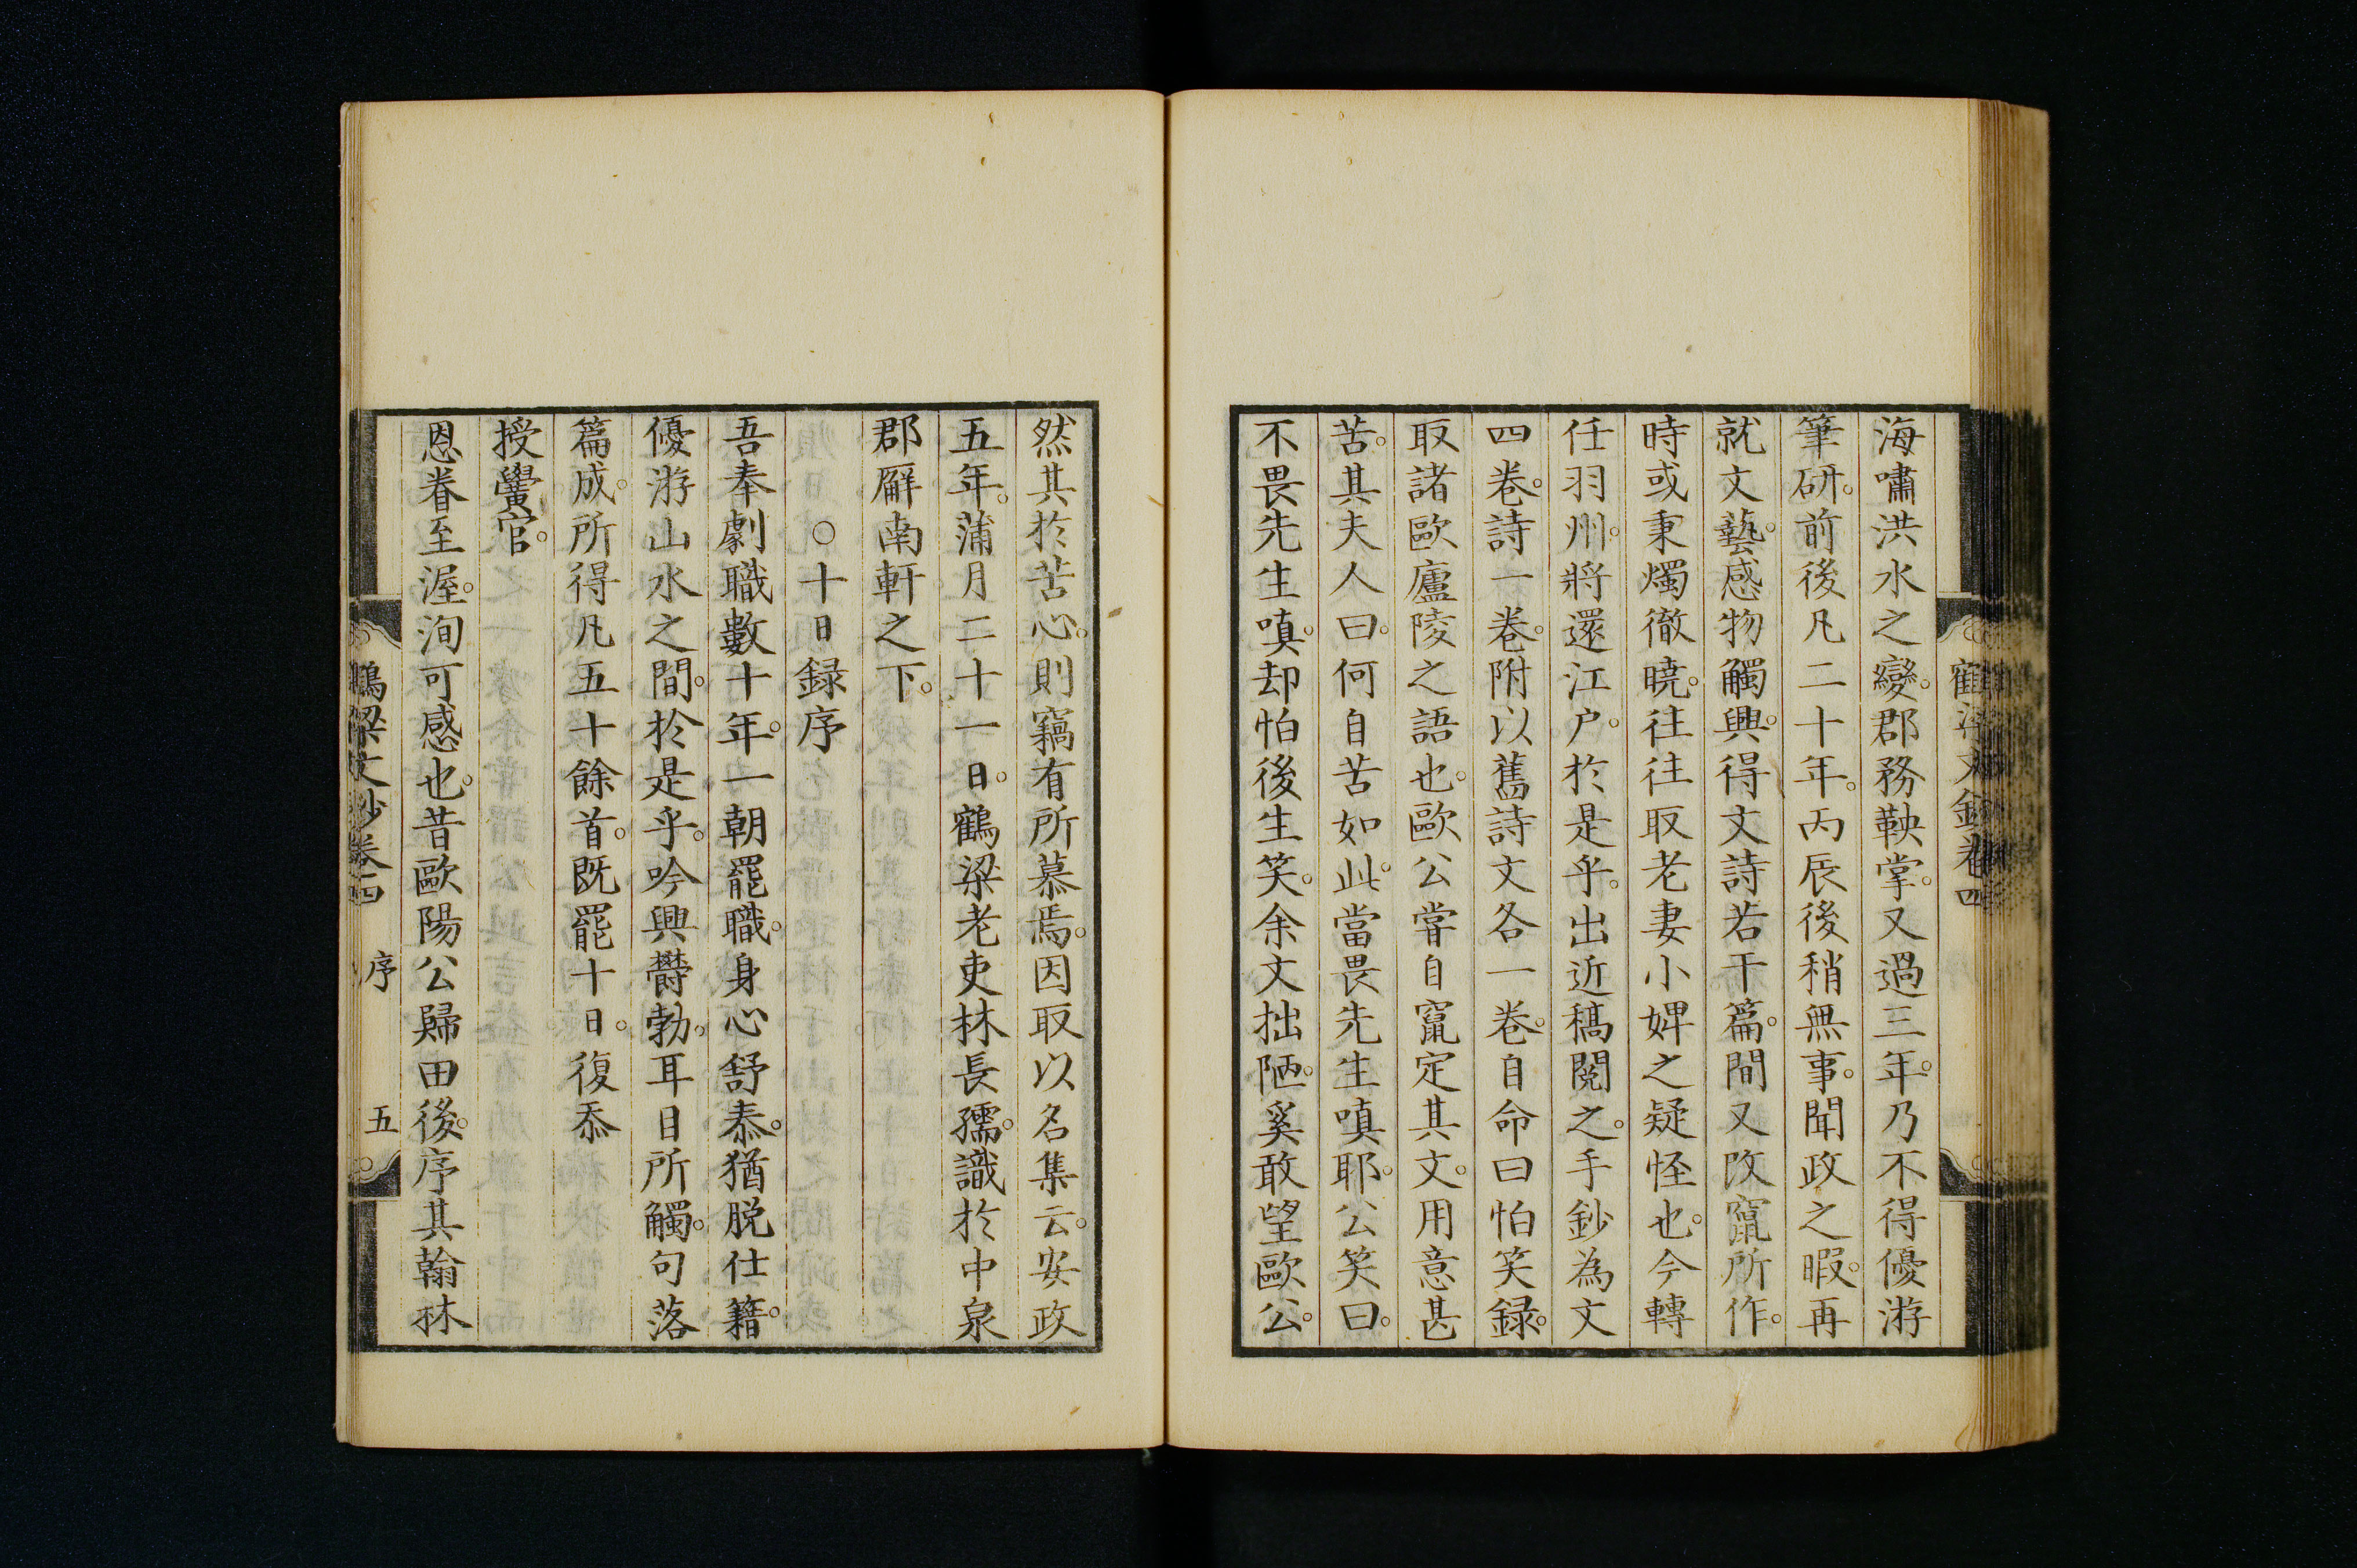 海嘯洪水之變。郡務鞅掌。又過三年。乃不得優游
筆研。前後凡二十年。丙辰後稍無事。聞政之暇。再
就文藝。感物觸興。得文詩若干篇。間又改竄所作。
時或秉燭徹曉。往往取老妻小婢之疑怪也。今轉
任羽州。將還江戶。於是乎。出近稿閱之。手鈔為文
四卷。詩一卷。附以舊詩文各一卷。自命曰怕笑録。
取諸歐廬陵之語也。歐公嘗自竄定其文。用意甚
苦。其夫人曰。何自苦如此。當畏先生嗔耶。公笑曰。
不畏先生嗔。却怕後生笑。余文拙陋。奚敢望歐公。
然其於苦心。則竊有所慕焉。因取以名集云。安政
五年。蒲月二十一日。鶴梁老吏林長孺。識於中泉
郡廨南軒之下。
○十日録序
吾奉劇職數十年。一朝罷職。身心舒泰。猶脱仕籍。
優游山水之間。於是乎。吟興欝勃。耳目所觸。句落
篇成。所得凡五十餘首。既罷十日。復忝
授黌官。
恩眷至渥。洵可感也。昔歐陽公歸田後。序其翰林
鶴梁文鈔卷四 序 五